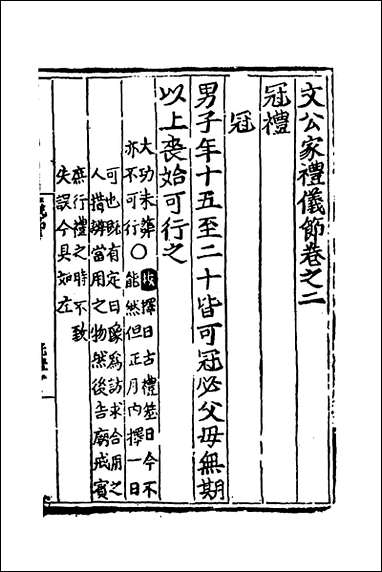 文公家禮儀節卷之二
冠禮
冠
男子年十五至二十皆可冠必父母無期
以上喪始可行之
大功未葬○按擇日古禮筮日今不
亦不可行 能然但正月內擇一日
可也既有定日豫為訪求合用之
人措辦當用之物然後告廟戒賓
庶行禮之時不致
失誤今具如左